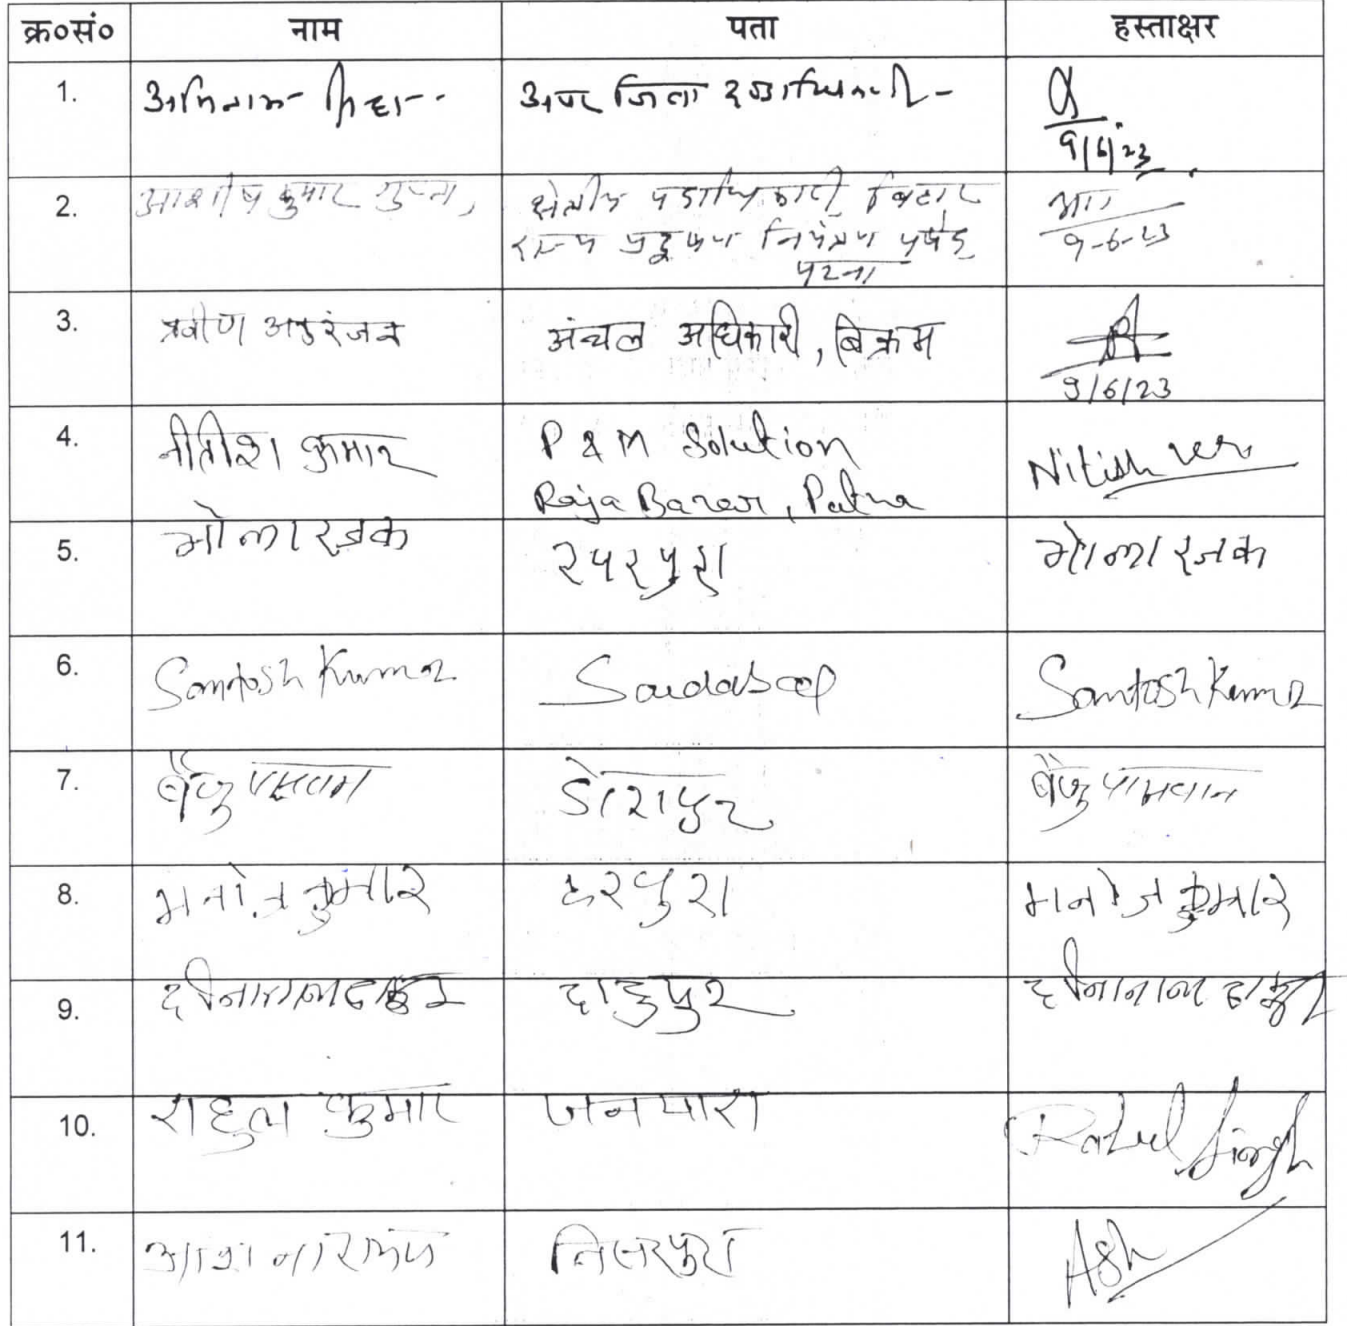 क्र०सं० नाम पता हस्ताक्षर
1. अपर जिला दण्डाधिकारी-
9/6/23
2. आशीष कुमार गुप्ता, क्षेत्रीय पदाधिकारी, बिहार
राज्य प्रदूषण नियंत्रण पर्षद,
पटना
9-6-23
3. प्रवीण अनुरंजन अंचल अधिकारी, बिक्रम
9/6/23
4. नीतीश कुमार P & M Solution Nitish
Raja Bazar, Patna
5. भोला रजक रपरपुरा भोला रजक
6. Santosh Kumar Saidabad Santosh Kumar
7. बैजु पासवान बैजु पासवान
8. मनोज कुमार मनोज कुमार
9. ठाकुर दादुपुर ठाकुर
10. राहुल कुमार जनपारा Rahul Singh
11. निसरपुरा Ash